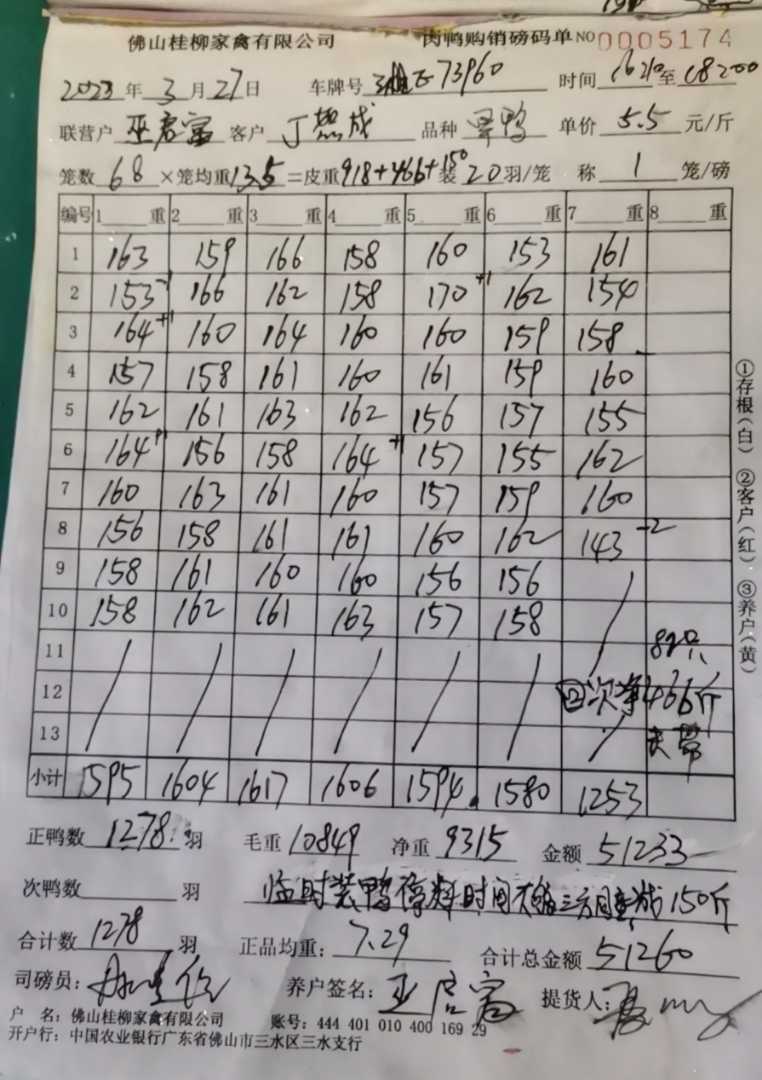 佛山桂柳家禽有限公司 肉鸭购销磅码单 NO 0005174
2023年3月27日 车牌号 73960 时间 至
联营户 巫启富 客户 丁 成 品种 旱鸭 单价 5.5 元/斤
笼数 68 ×笼均重 13.5 =皮重 918+466+150 装 20 羽/笼 称 1 笼/磅
编号 1 重 2 重 3 重 4 重 5 重 6 重 7 重 8 重
1 163 159 166 158 160 153 161
2 153 -1 166 162 158 170 +1 162 154
3 164 +1 160 164 160 160 159 158
4 157 158 161 160 161 159 160
5 162 161 163 162 156 157 155
6 164 +1 156 158 164 +1 157 155 162
7 160 163 161 160 157 159 160
8 156 158 161 161 160 162 143 -2
9 158 161 160 160 156 156
10 158 162 161 163 157 158
11 82只
12 次净466斤
13
小计 1595 1604 1617 1606 1594 1580 1253
正鸭数 1278 羽 毛重 10849 净重 9315 金额 51233
次鸭数 羽 临时装鸭停料时间 三方同意减150斤
合计数 1278 羽 正品均重: 7.29 合计总金额 51260
司磅员: 养户签名: 巫启富 提货人:
户 名: 佛山桂柳家禽有限公司 账号: 444 401 010 400 169 29
开户行: 中国农业银行广东省佛山市三水区三水支行
①存根(白) ②客户(红) ③养户(黄)